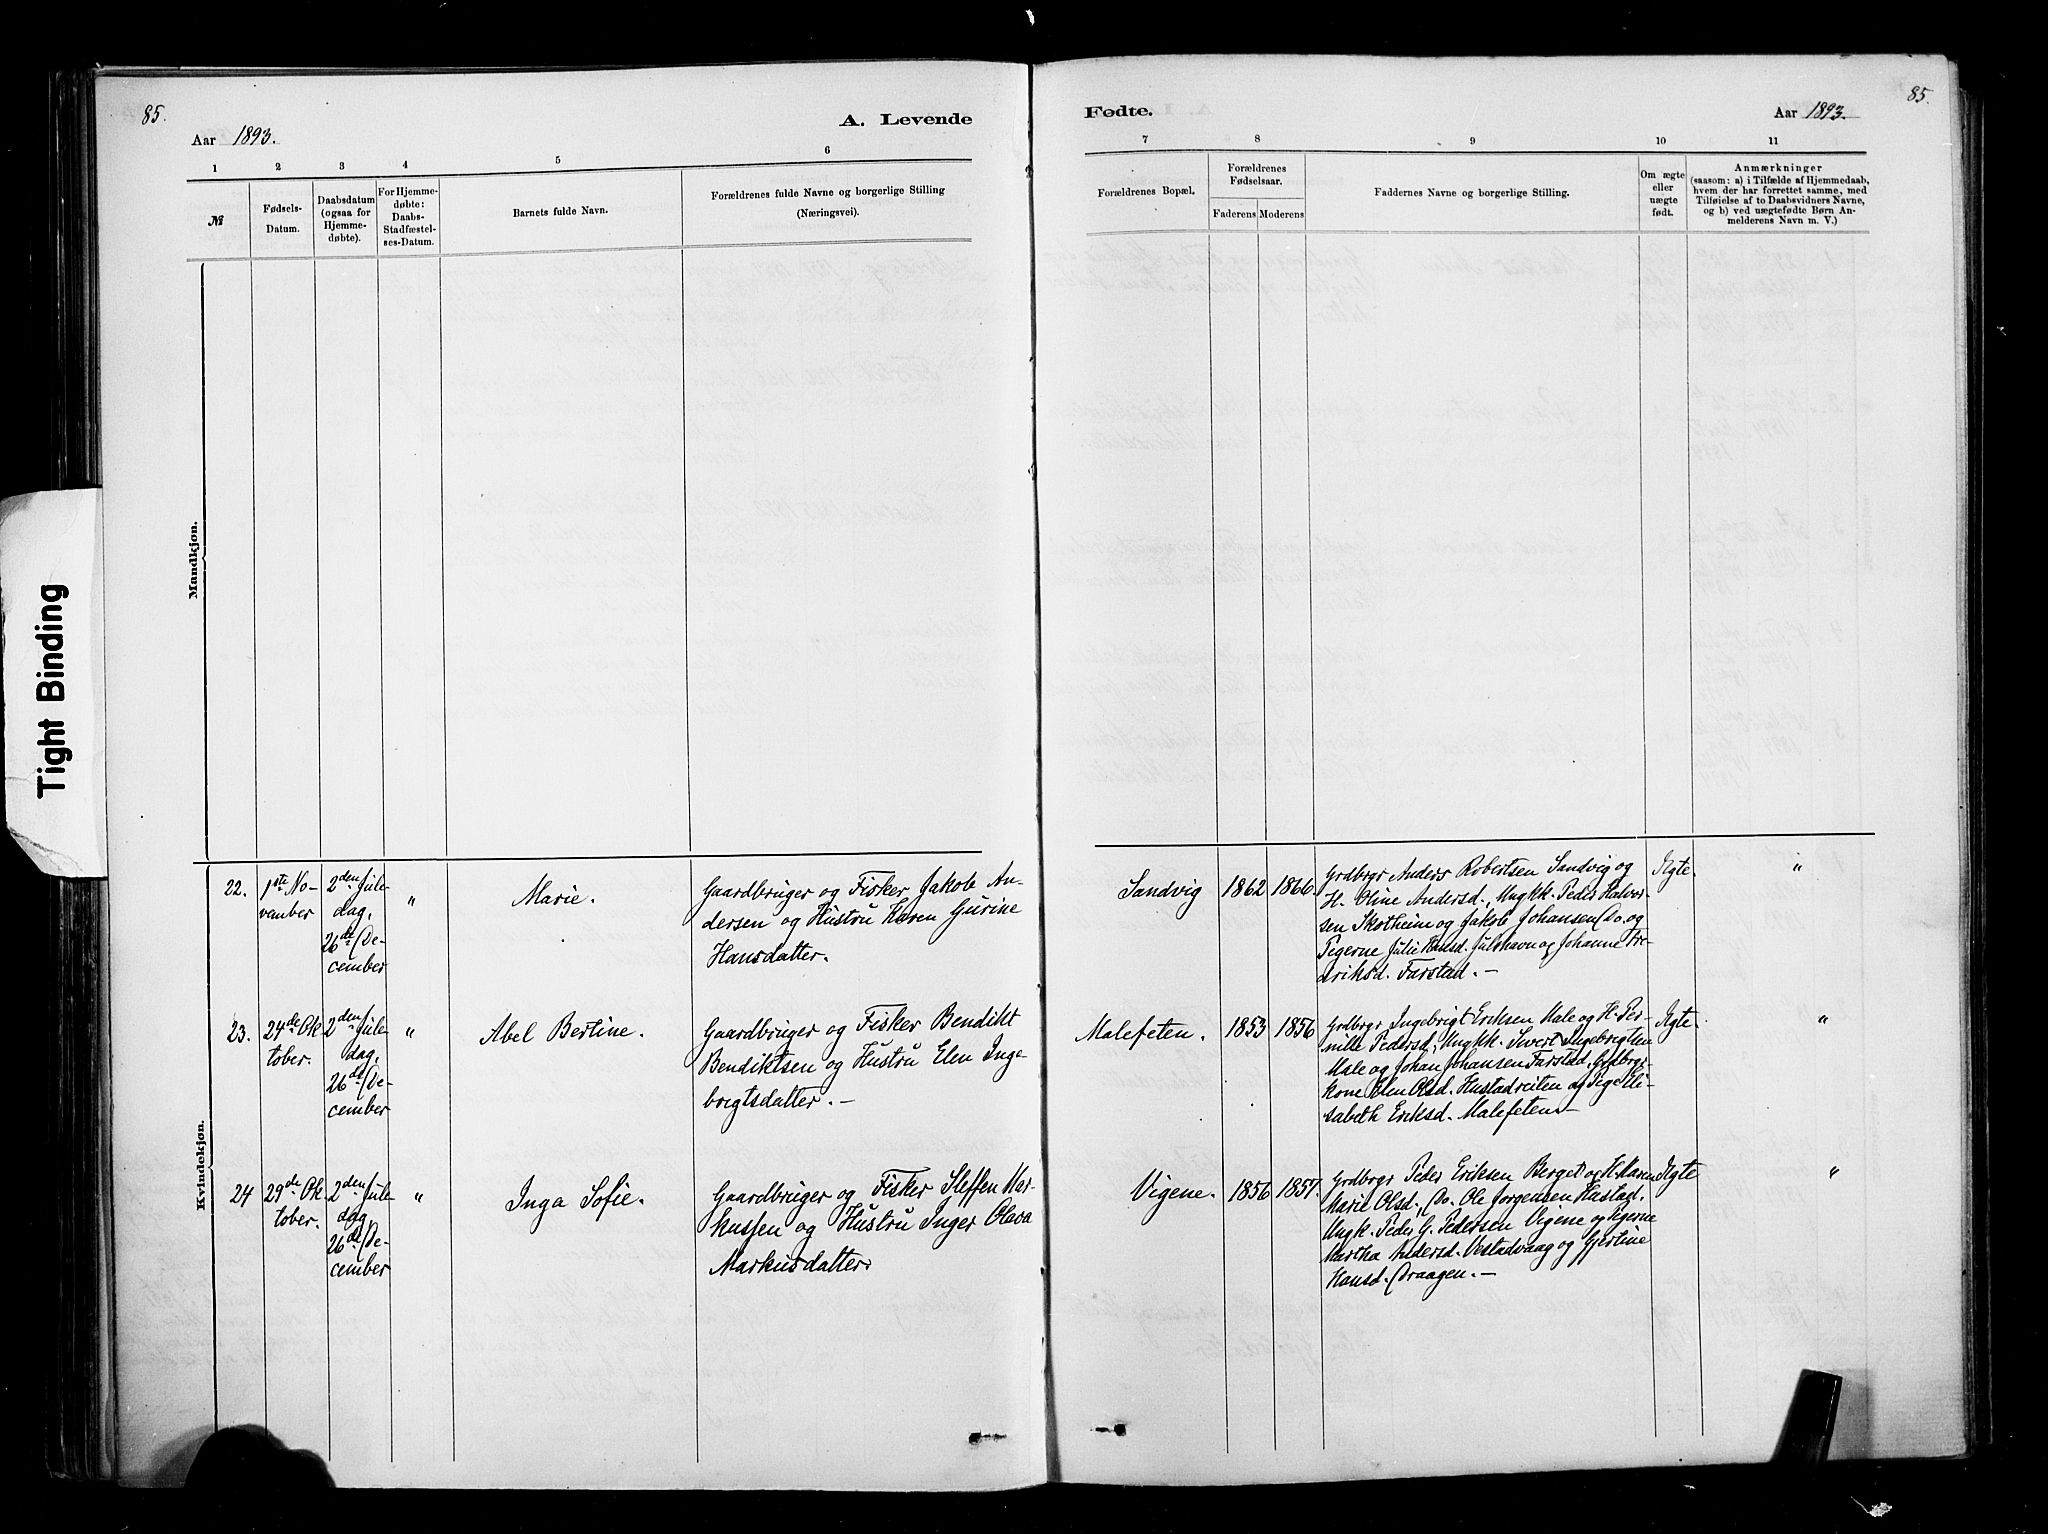 85.
Aar 1893.
A. Levende
1 2 3 4 5 6
№
Fødsels-
Datum.
Daabsdatum
(ogsaa for
Hjemme-
døbte).
For Hjemme-
døbte:
Daabs-
Stadfæstel-
ses-Datum.
Barnets fulde Navn.
Forældrenes fulde Navne og borgerlige Stilling
(Næringsvei).
Mandkjøn.
Tight Binding
Kvindekjøn.
22.
1ste No-
vember
2den Jule-
dag,
26de De-
cember
"
Marie.
Gaardbruger og Fisker Jakob An-
dersen og Hustru Karen Gurine
Hansdatter.
23.
24de Ok
tober.
2den Jule
dag,
26de De-
cember
"
Abel Bertine.
Gaardbruger og Fisker Bendikt
Bendiktsen og Hustru Elen Inge-
brigtsdatter. —
24
29de Ok
tober.
2den Jule
dag,
26de De-
cember
"
Inga Sofie.
Gaardbruger og Fisker Steffen Mar-
kussen og Hustru Inger Olava
Markusdatter.
Fødte.
Aar 1893.
85.
7 8 9 10 11
Forældrenes Bopæl.
Forældrenes
Fødselsaar.
Faderens Moderens
Faddernes Navne og borgerlige Stilling.
Om ægte
eller
uægte
født.
Anmærkninger
(saasom: a) i Tilfælde af Hjemmedaab,
hvem der har forrettet samme, med
Tilføielse af to Daabsvidners Navne,
og b) ved uægtefødte Børn An-
melderens Navn m. V.)
Sandvig
1862 1866
Grdbrgr Anders Robertsen Sandvig og
H. Oline Andersd., Ungkk. Peder Halvor-
sen Skotheim og Jakob Johansen Do. og
Pigerne Julie Hansd. Julshavn og Johanne Fre-
driksd. Farstad. —
Ægte.
"
Malefeten.
1853 1856
Grdbrgr Ingebrigt Eriksen Male og H. Per-
nille Pedersd., Ungkk. Sivert Ingebrigtsen
Male og Johan Johansen Farstad, Grdbrgr-
kone Elen Olsd. Hustadveiten og Pige Eli-
sabeth Eriksd. Malefeten —
Ægte.
"
Vigene.
1856 1857.
Grdbrgr Peder Eriksen Berget og H. Maren
Marie Olsd., Do. Ole Jørgensen Hustad,
Ungk. Peder G. Pedersen Vigene og Pigerne
Martha Andersd. Vestadvaag og Gjertine
Hansd. Draagen. —
Ægte
"